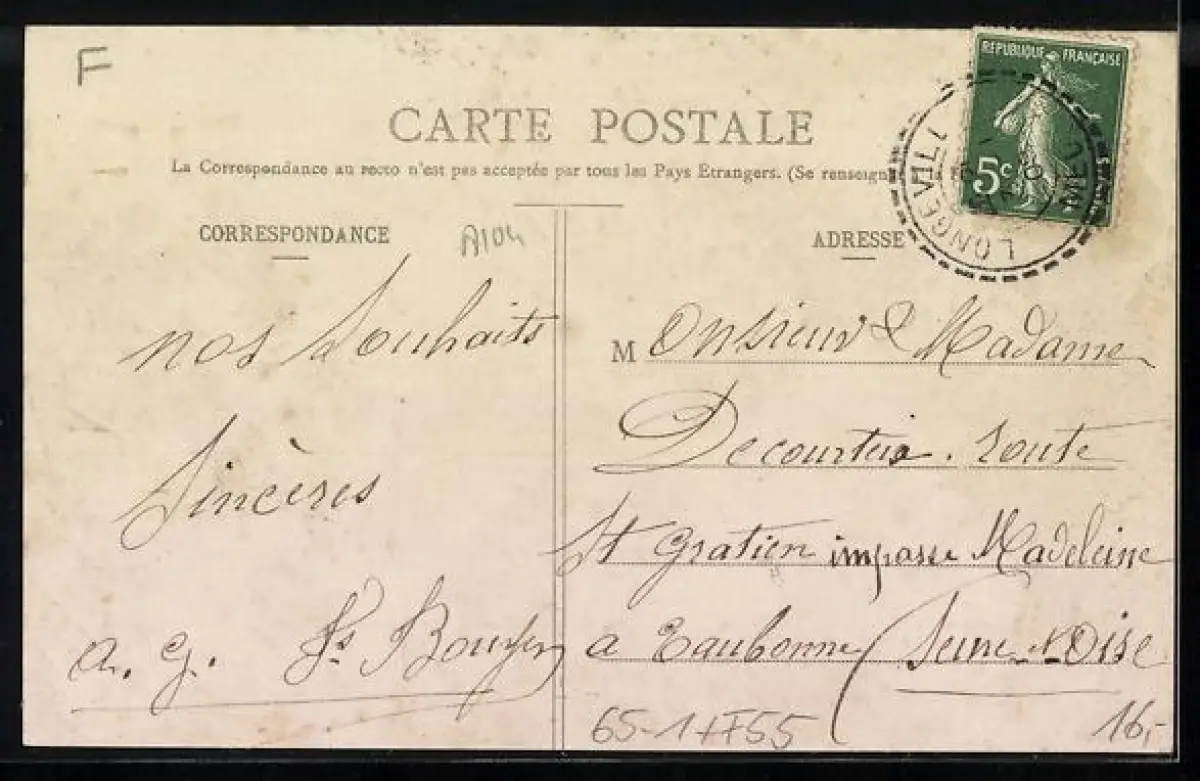 F
CARTE POSTALE
La Correspondance au recto n'est pas acceptée par tous les Pays Etrangers. (Se renseign
REPUBLIQUE FRANÇAISE
5c
LONGEVILL
CORRESPONDANCE
A104
nos Souhaits
Sincères
a. G.
ADRESSE
M onsieur & Madame
Decourteix. route
St Gratien impasse Madeleine
a Eaubonne (Seine et Oise
65-1
16,-